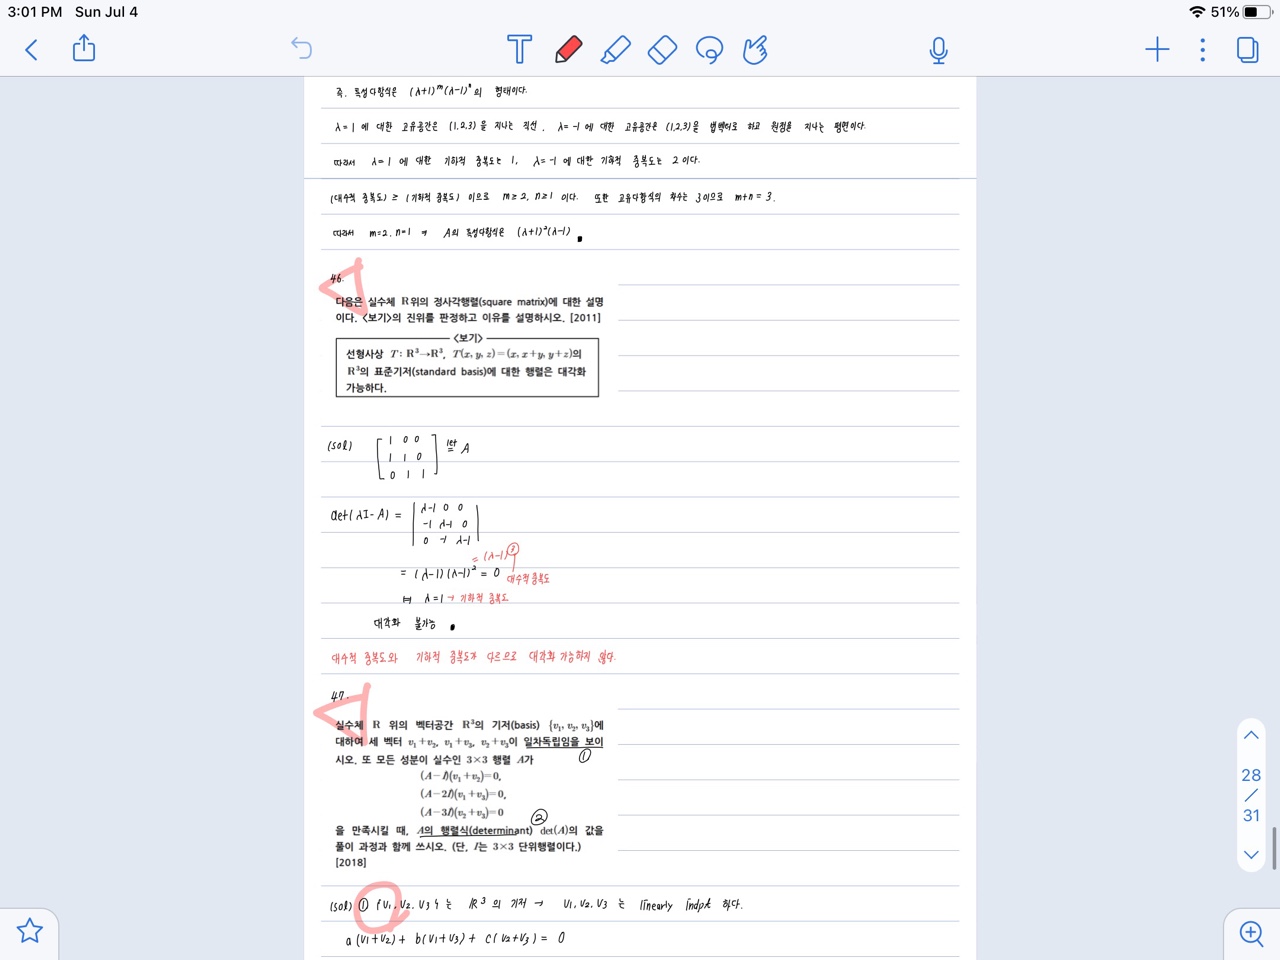 3:01 PM Sun Jul 4
51%
즉, 특성다항식은 (λ+1)ᵐ(λ-1)ⁿ의 형태이다.
λ=1 에 대한 고유공간은 (1,2,3)을 지나는 직선, λ=-1 에 대한 고유공간은 (1,2,3)을 법벡터로 하고 원점을 지나는 평면이다.
따라서 λ=1 에 대한 기하적 중복도는 1, λ=-1 에 대한 기하적 중복도는 2이다.
(대수적 중복도) ≥ (기하적 중복도) 이므로 m≥2, n≥1 이다. 또한 고유다항식의 차수는 3이므로 m+n=3.
따라서 m=2, n=1 → A의 특성다항식은 (λ+1)²(λ-1)
46.
다음은 실수체 R위의 정사각행렬(square matrix)에 대한 설명
이다. <보기>의 진위를 판정하고 이유를 설명하시오. [2011]
<보기>
선형사상 T: R³→R³, T(x, y, z)=(x, x+y, y+z)의
R³의 표준기저(standard basis)에 대한 행렬은 대각화
가능하다.
(sol) [1 0 0
1 1 0
0 1 1] let = A
det(λI-A) = |λ-1 0 0
-1 λ-1 0
0 -1 λ-1|
= (λ-1)③
= (λ-1)(λ-1)² = 0 대수적 중복도
λ=1 → 기하적 중복도
대각화 불가능
대수적 중복도와 기하적 중복도가 다르므로 대각화 가능하지 않다.
47.
실수체 R 위의 벡터공간 R³의 기저(basis) {v₁, v₂, v₃}에
대하여 세 벡터 v₁+v₂, v₁+v₃, v₂+v₃이 일차독립임을 보이
시오. 또 모든 성분이 실수인 3×3 행렬 A가 ①
(A-I)(v₁+v₂)=0,
(A-2I)(v₁+v₃)=0,
(A-3I)(v₂+v₃)=0 ②
을 만족시킬 때, A의 행렬식(determinant) det(A)의 값을
풀이 과정과 함께 쓰시오. (단, I는 3×3 단위행렬이다.)
[2018]
(sol) ① {v₁, v₂, v₃}는 ℝ³의 기저 → v₁, v₂, v₃ 는 linearly indpt 하다.
a(v₁+v₂) + b(v₁+v₃) + c(v₂+v₃) = 0
28
/
31